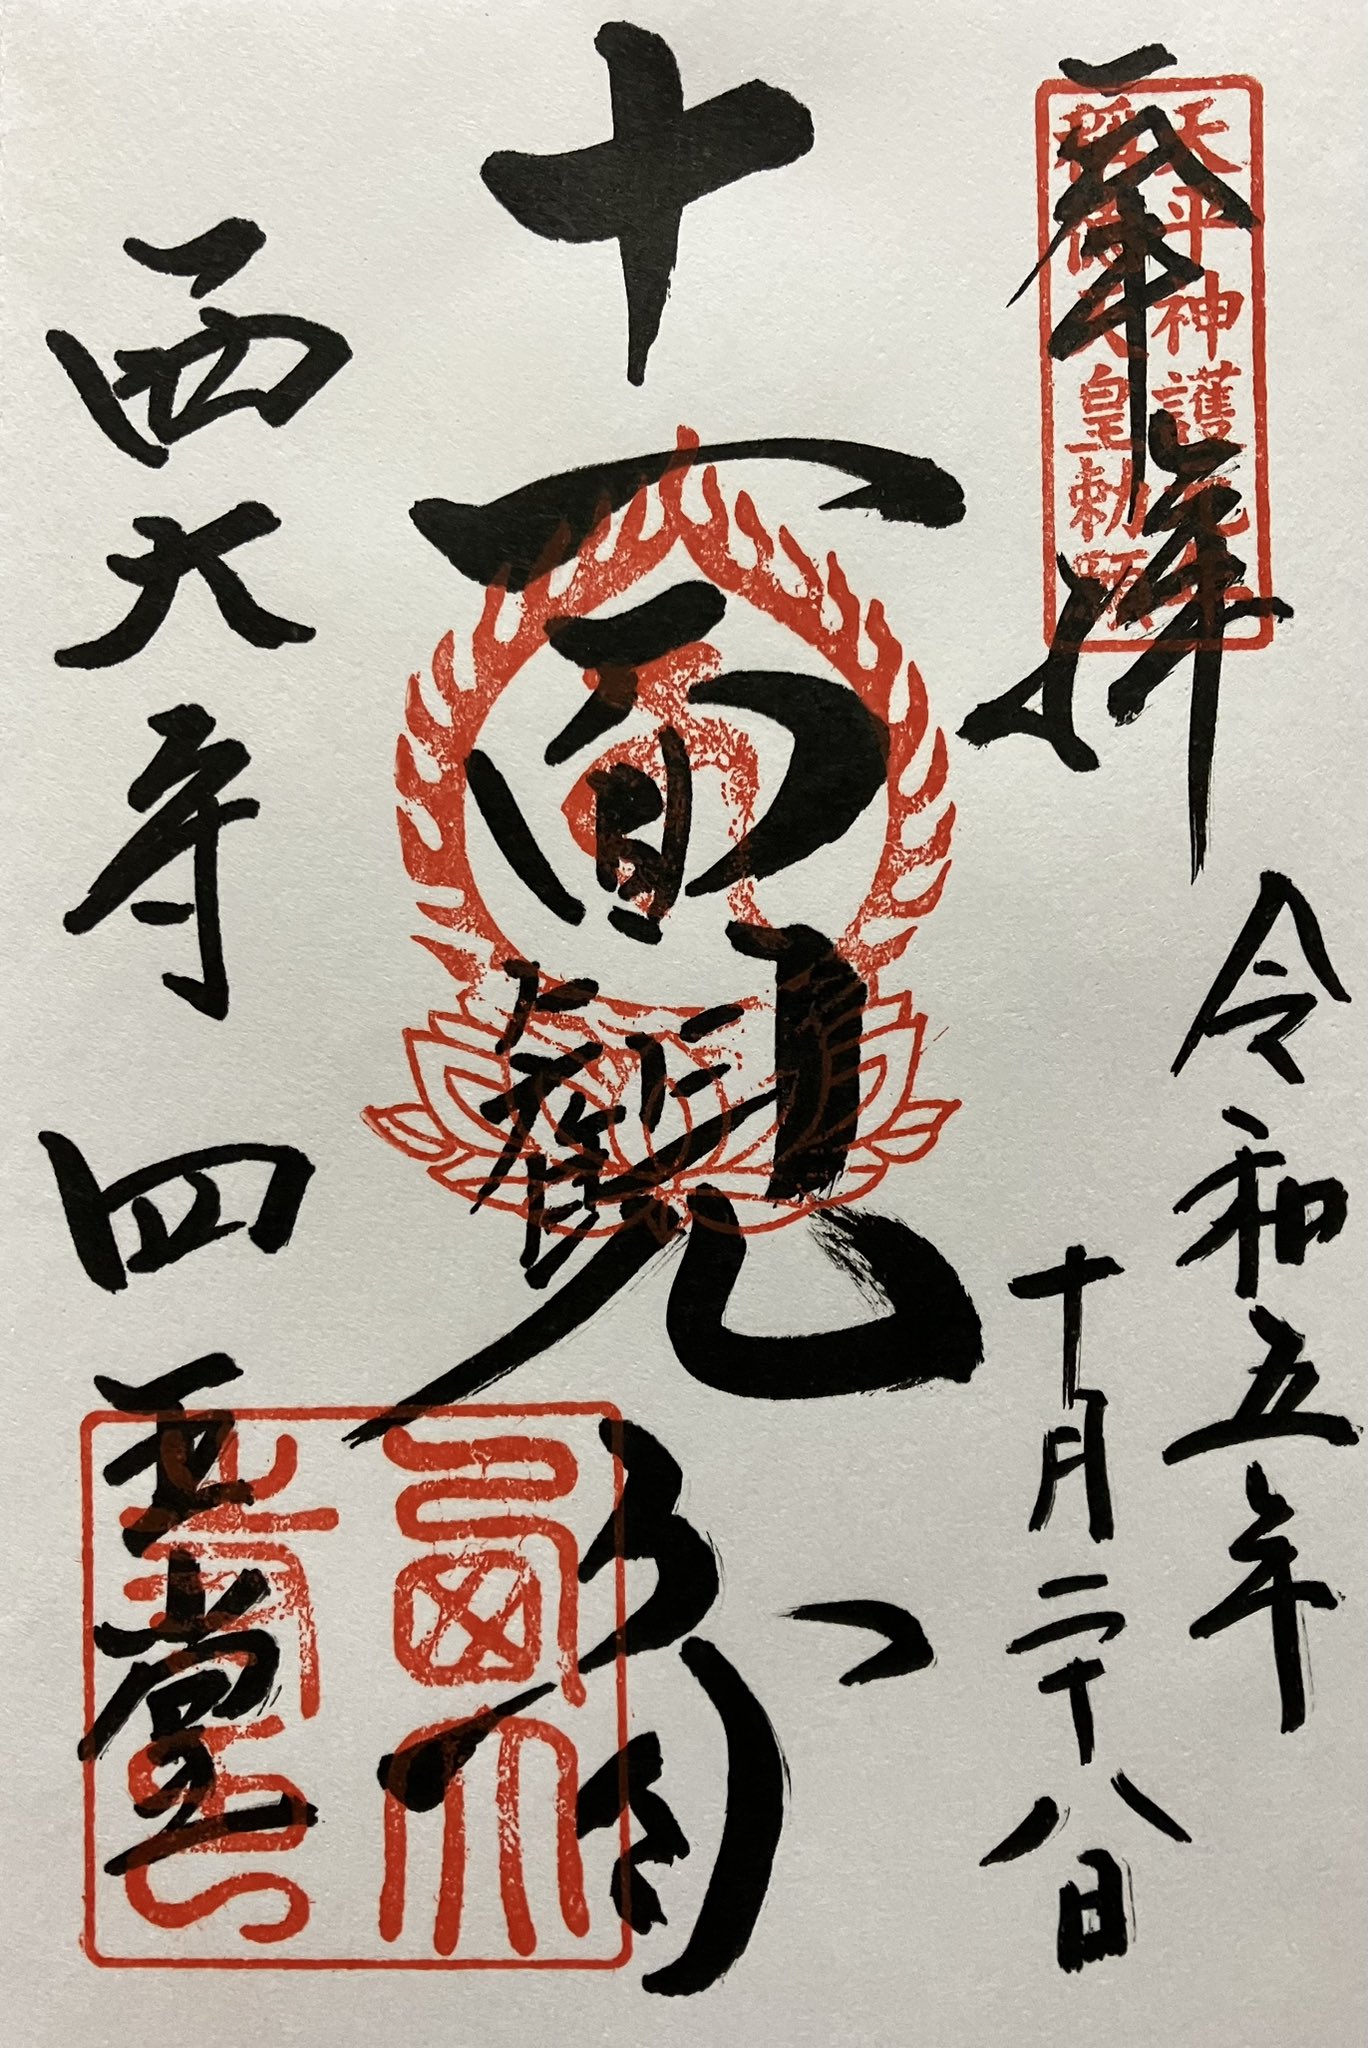 奉拝
天平神護元年
稱德天皇勅願
令和五年
十月二十八日
十一面觀音
西大寺四王堂
西大
寺印